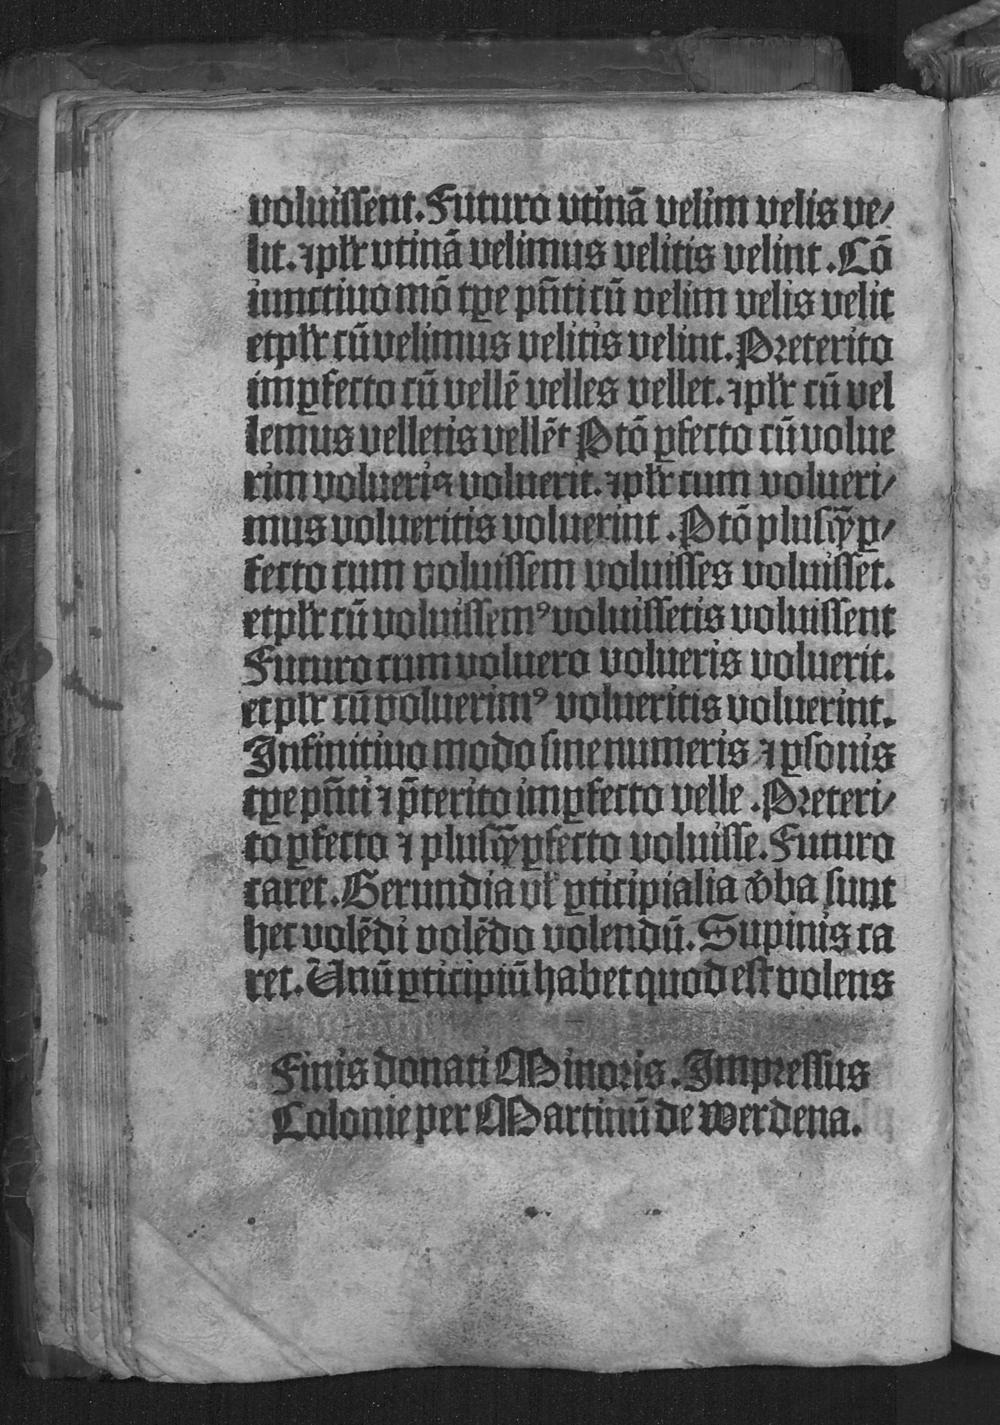 voluissent. Futuro vtinā velim velis ve/
lit. ⁊ płr vtinā velimus velitis velint. Cō
iunctiuo mō tꝑe pñti cū velim velis velit
et płr cū velimus velitis velint. Preterito
imꝑfecto cū vellē velles vellet. ⁊ płr cū vel
lemus velletis vellēt Ptō ꝑfecto cū volue
rim volueris voluerit. ⁊ płr cum volueri/
mus volueritis voluerint. Ptō plusꝙ̄ꝑ/
fecto cum voluissem voluisses voluisset.
et płr cū voluissemꝰ voluissetis voluissent
Futuro cum voluero volueris voluerit.
et plr cū voluerimꝰ volueritis voluerint.
Infinitiuo modo sine numeris ⁊ ꝑsonis
tꝑe pñti ⁊ p̄terito imꝑfecto velle. Preteri/
to ꝑfecto ⁊ plusꝙ̄ꝑfecto voluisse. Futuro
caret. Gerundia vł ꝑticipialia v̄ba sunt
hec volēdi volēdo volendū. Supinis ca
ret. Unū ꝑticipiū habet quod est volens
Finis donati Minoris. Impressus
Colonie per Martinū de werdena.